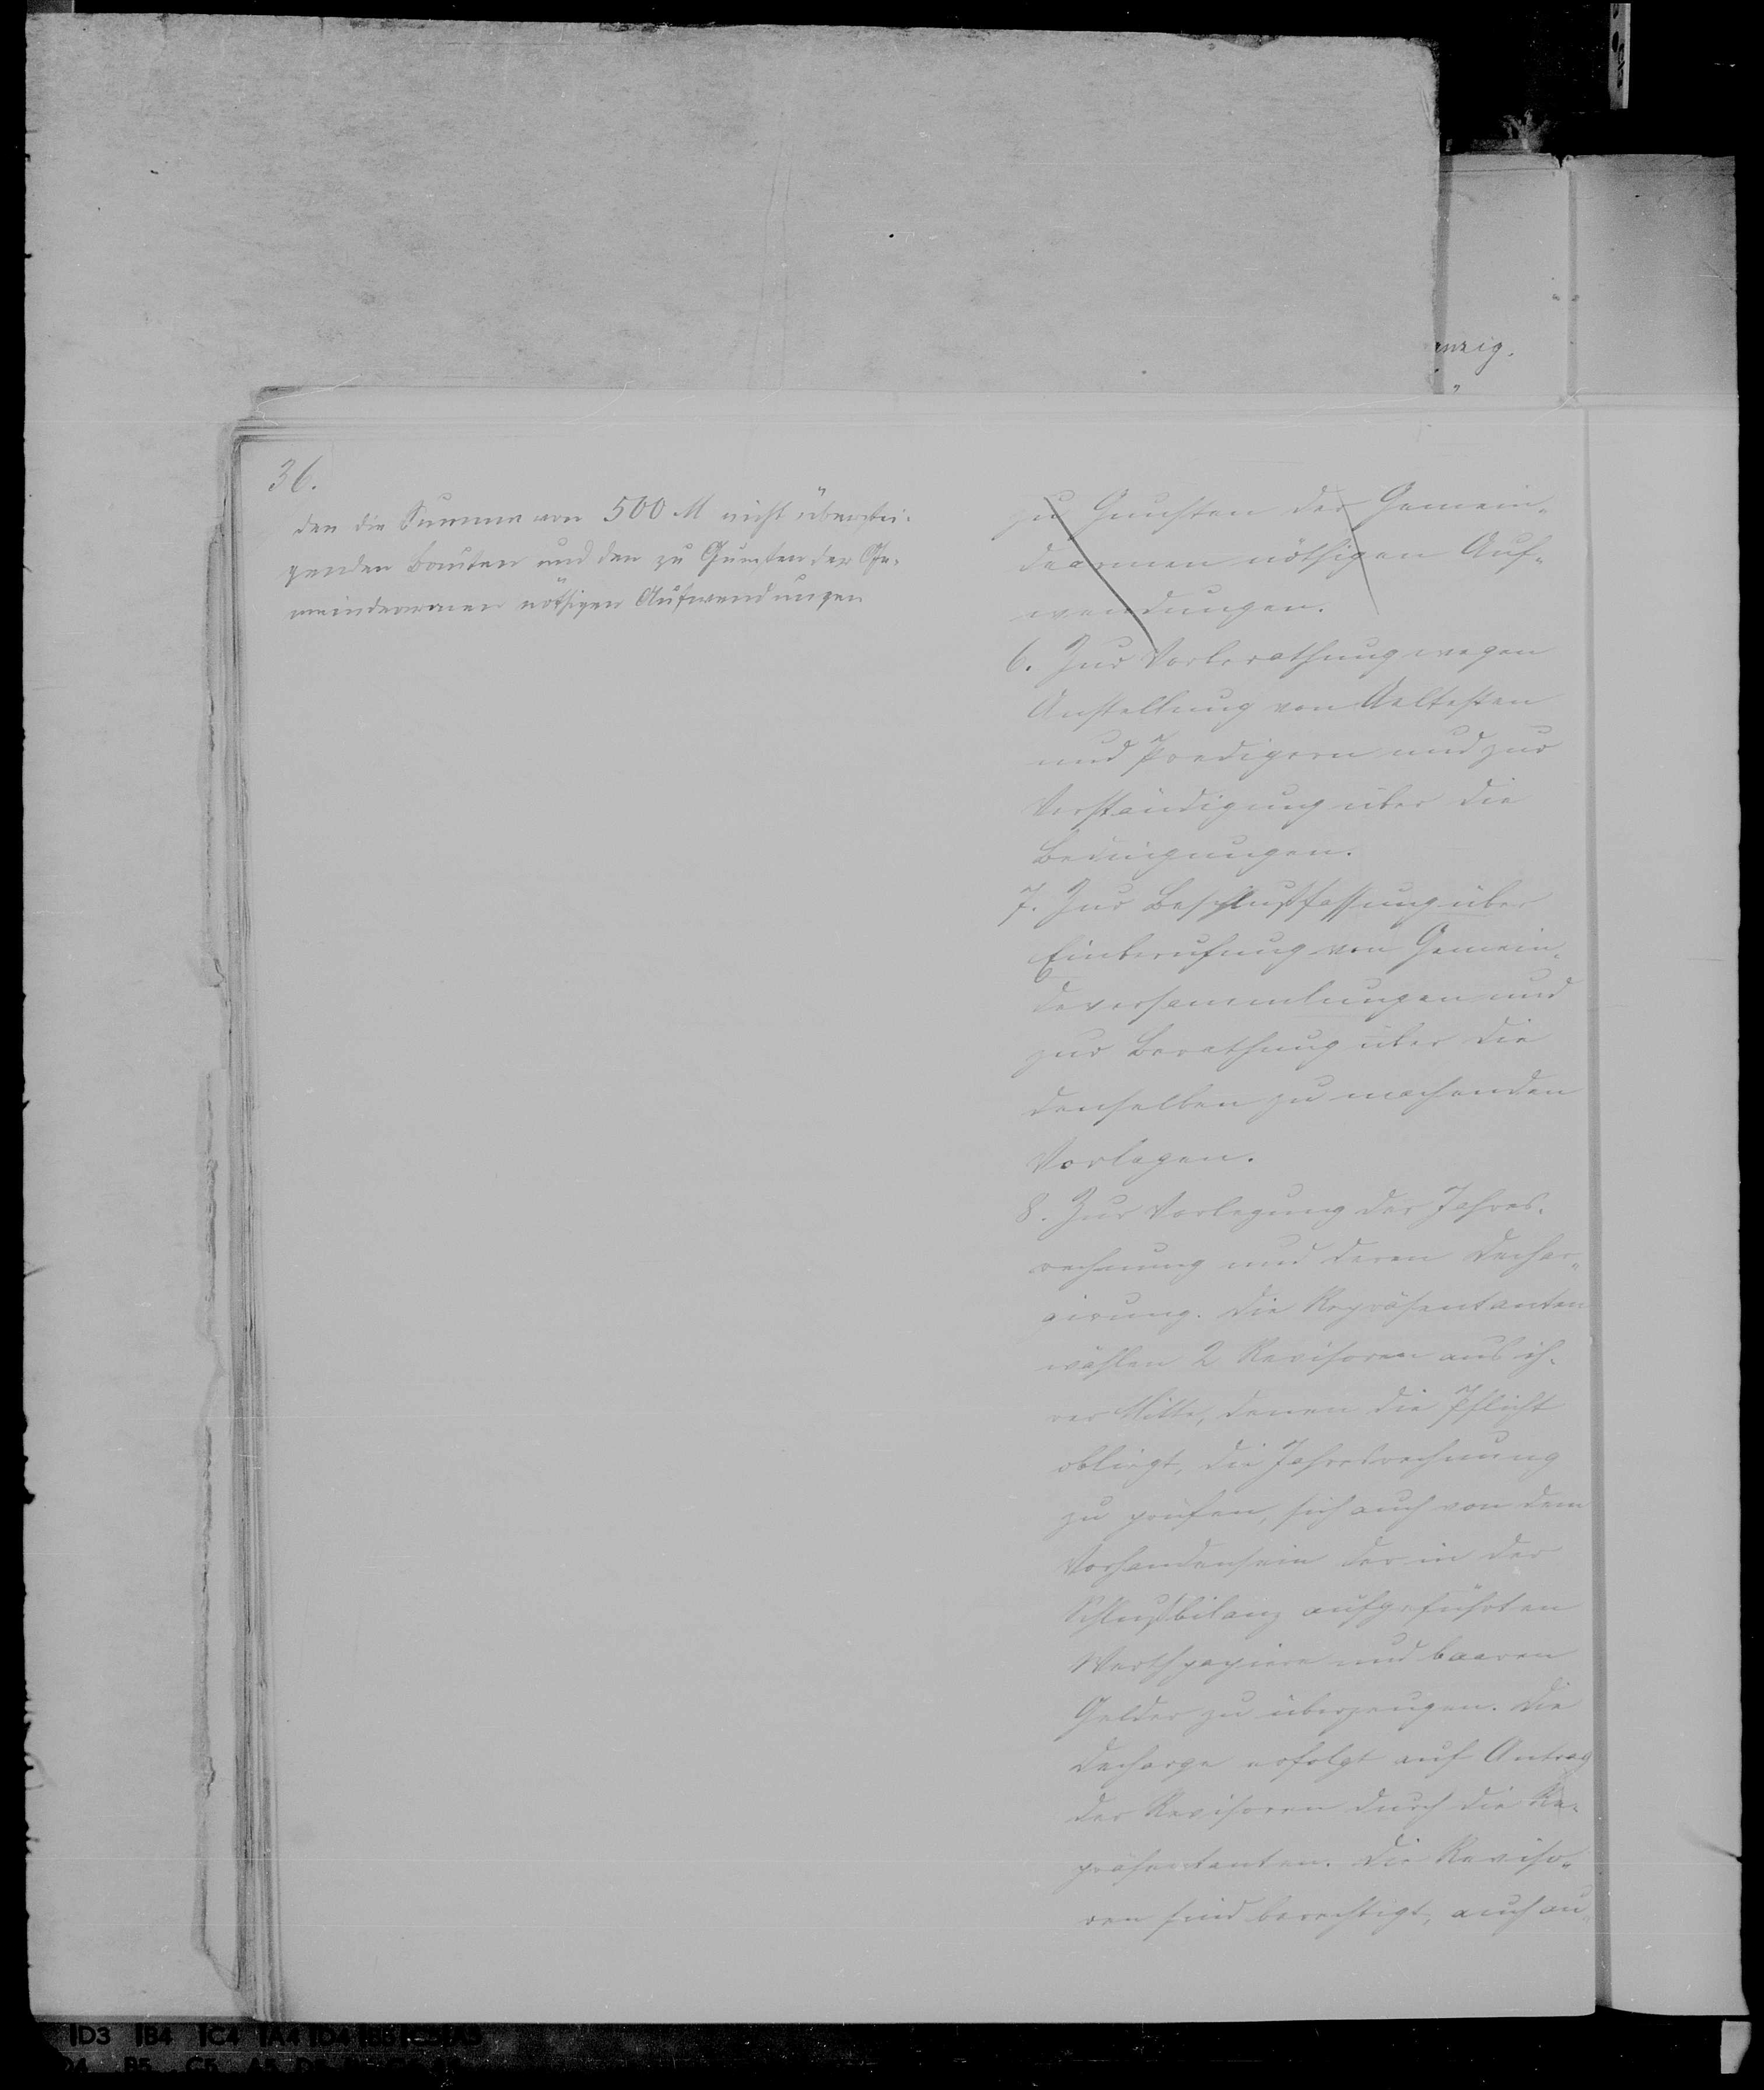 anzig.
36.
den die Summe von 500 M nicht überstei-
genden Bauten und den zu Gunsten der Ge-
meindearmen nöthigen Aufwendungen
zu Gunsten der Gemein-
dearmen nöthigen Auf-
wendungen.
6. Zur Vorberathung wegen
Anstellung von Aeltesten
und Predigern und zur
Verständigung über die
Bedingungen.
7. Zur Beschlußfassung über
Einberufung von Gemein-
deversammlungen und
zur Berathung über die
denselben zu machenden
Vorlagen.
8. Zur Vorlegung der Jahres-
rechnung und deren Dechar-
girung. Die Repräsentanten
wählen 2 Revisoren aus ih-
rer Mitte, denen die Pflicht
obliegt, die Jahresrechnung
zu prüfen, sich auch von dem
Vorhandensein der in der
Schlußbilanz aufgeführten
Werthpapiere und baaren
Gelder zu überzeugen. Die
Decharge erfolgt auf Antrag
der Revisoren durch die Re-
präsentanten. Die Reviso-
ren sind berechtigt, auch au-
D3 B4 C4 A4 D4
B5 C5 A5